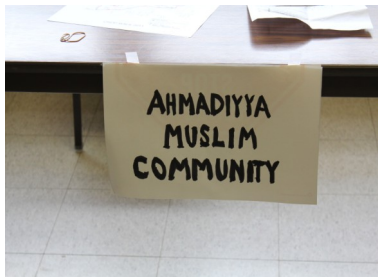 AHMADIYYA
MUSLIM
COMMUNITY